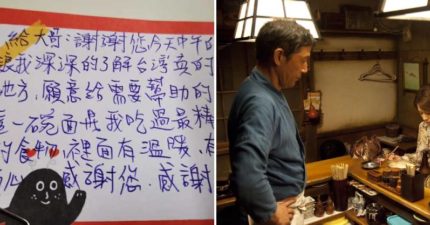 給大哥：謝謝您今天中午的
讓我深深的了解台灣真的
地方，願意給需要幫助的
這一碗面是我吃過最精
的食物，裡面有溫暖，有
心，感謝您．感謝